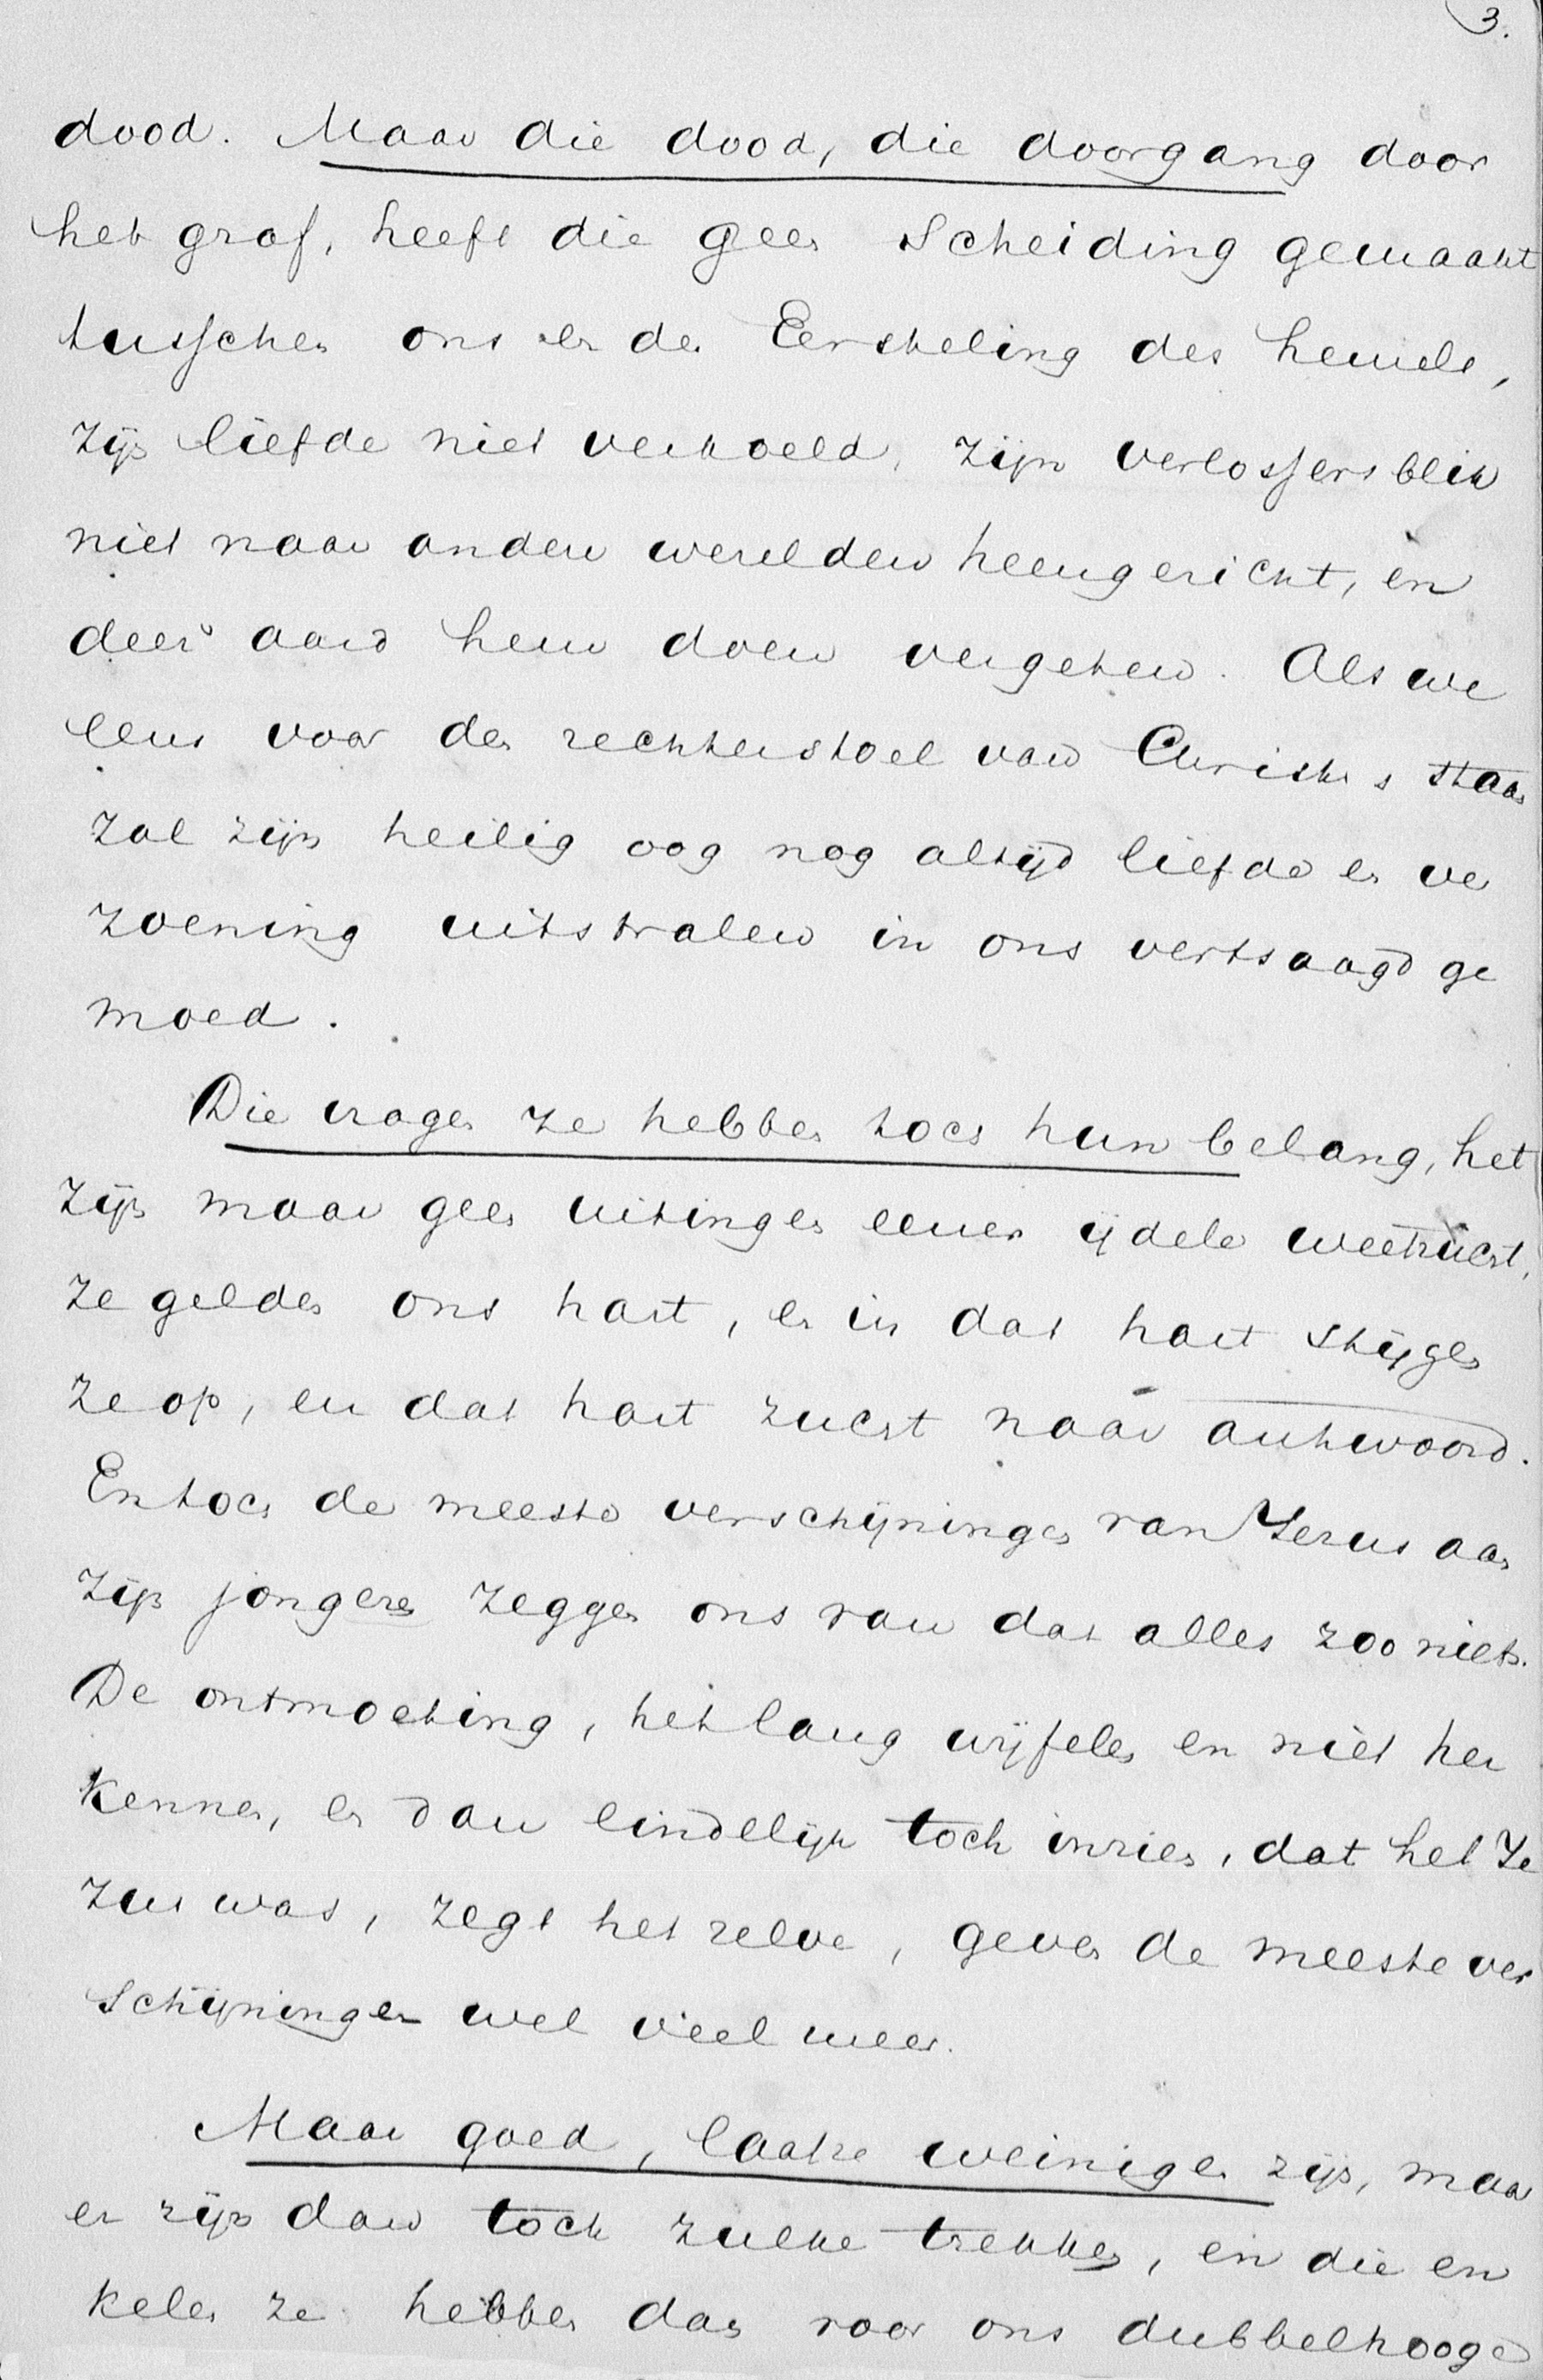 3.
dood. Maar die dood, die doorgang door
het graf, heeft die geen scheiding gemaakt
tusschen ons en den Eersteling des hemels,
zijn liefde niet verkoeld, zijn verlossersblik
niet naar andere werelden heengericht, en
deez' aard hem doen vergeten. Als we
eens voor den rechterstoel van Christus staan
zal zijn heilig oog nog altijd liefde en ver
zoening uitstralen in ons vertsaagd ge
moed.
Die vragen ze hebben toch hun belang, het
zijn maar geen uitingen eener ijdele weetzucht,
ze gelden ons hart, en in dat hart stijgen
ze op, en dat hart zucht naar antwoord.
En toch de meeste verschijningen van Jezus aan
zijn jongeren zeggen ons van dat alles zoo niets.
De ontmoeting, het lang twijfelen en niet her
kennen, en dan eindelijk toch inzien, dat het Je
zus was, zegt hetzelve, geven de meeste ver
schijningen wel veel meer.
Maar goed, laat ze weinigen zijn, maar
er zijn dan toch zulke trekken, en die en
kelen ze hebben dan voor ons dubbel hooge